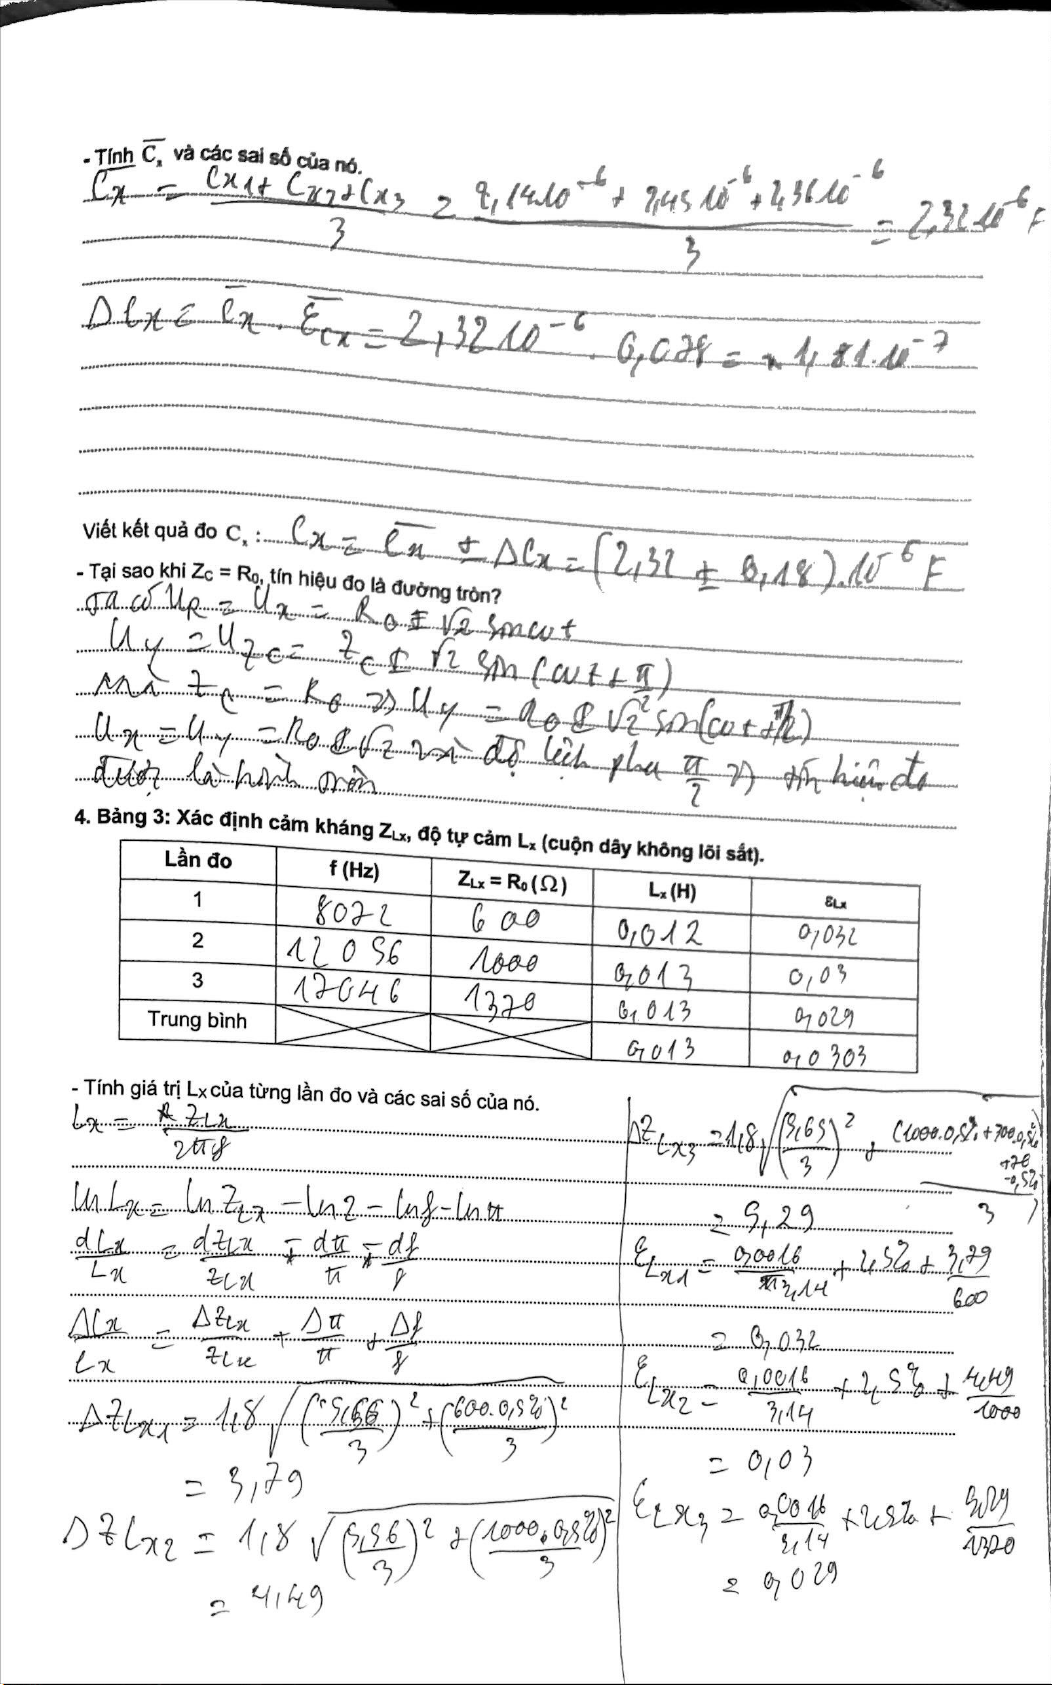 - Tính C̅ₓ và các sai số của nó.
C̅x = (Cx1 + Cx2 + Cx3)/3 = (2,14.10⁻⁶ + 2,45.10⁻⁶ + 2,36.10⁻⁶)/3 = 2,32.10⁻⁶ F
ΔCx = C̅x . ε̅Cx = 2,32.10⁻⁶ . 0,078 = 1,81.10⁻⁷
Viết kết quả đo Cₓ : Cx = C̅x ± ΔCx = (2,32 ± 0,18).10⁻⁶ F
- Tại sao khi ZC = R0, tín hiệu đo là đường tròn?
Ta có UR = Ux = R0 I √2 sin ωt
Uy = UZC = ZC I √2 sin (ωt + π/2)
mà ZC = R0 => Uy = R0 I √2 sin(ωt + π/2)
Ux = Uy = R0 I √2 và độ lệch pha π/2 => tín hiệu đo
được là hình tròn
4. Bảng 3: Xác định cảm kháng ZLx, độ tự cảm Lx (cuộn dây không lõi sắt).
Lần đo f (Hz) ZLx = R0 (Ω) Lx (H) εLx
1 8072 600 0,012 0,032
2 12056 1000 0,013 0,03
3 17046 1370 0,013 0,029
Trung bình 0,013 0,0303
- Tính giá trị Lx của từng lần đo và các sai số của nó.
Lx = ZLx/2πf
ln Lx = ln ZLx - ln 2 - ln f - ln π
dLx/Lx = dZLx/ZLx - dπ/π - df/f
ΔLx/Lx = ΔZLx/ZLx + Δπ/π + Δf/f
ΔZLx1 = 1,8 √((5,66/3)² + (600.0,5%/3)²
= 3,79
ΔZLx2 = 1,8 √(5,56/3)² + (1000.0,5%/3)²
= 4,49
ΔZLx3 = 1,8 √(5,65/3)² + (1000.0,5% + 300.0,5% + 70.0,5%/3)²
= 5,29
εLx1 = 0,0016/3,14 + 2,5% + 3,79/600
= 0,032
εLx2 = 0,0016/3,14 + 2,5% + 4,49/1000
= 0,03
εLx3 = 0,0016/3,14 + 2,5% + 5,29/1370
= 0,029